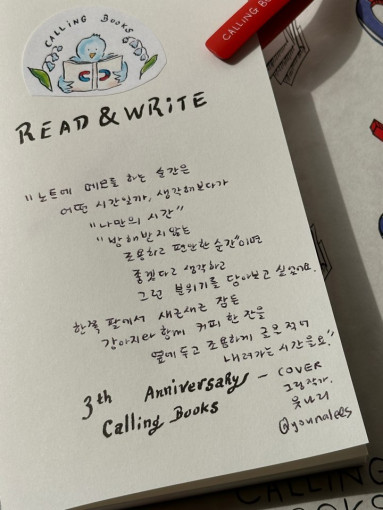 CALLING BOOKS
CALLING BOO
READ & WRITE
"노트에 메모를 하는 순간은
어떤 시간일까, 생각해보다가
"나만의 시간"
"방해받지 않는
조용하고 편안한 순간"이면
좋겠다고 생각하고
그런 분위기를 담아보고 싶었어요.
한쪽 팔에서 새근새근 잠든
강아지와 함께 커피 한 잔을
옆에 두고 조용하게 글을 적어
내려가는 시간을요."
3th Anniversary - COVER
Calling Books
그림작가.
윳나리
@younalees
CALLING
BOOKS